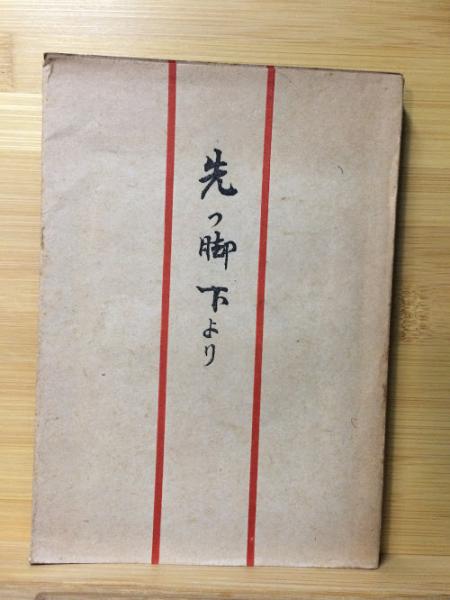 先つ脚下より